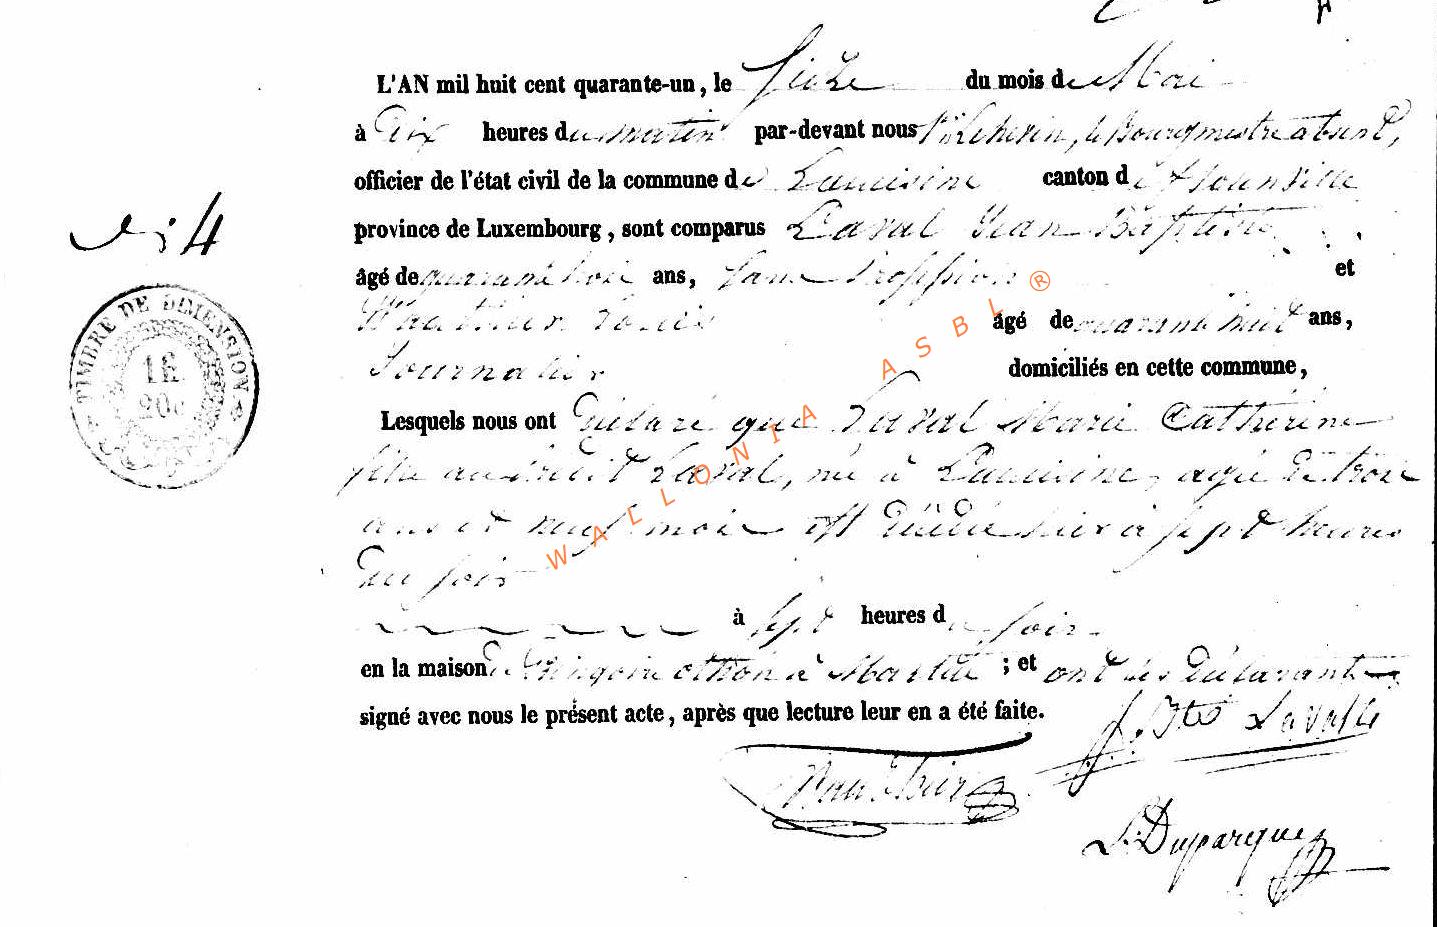 L'AN mil huit cent quarante-un, le Seize du mois de Mai
à Dix heures du matin par-devant nous Echevin, le Bourgmestre absent,
officier de l'état civil de la commune de Lacuisine canton de Florenville
province de Luxembourg, sont comparus Laval Jean Baptiste
âgé de quarante trois ans, sans Profession et
Wauthier Louis âgé de quarante huit ans,
Journalier domiciliés en cette commune,
Lesquels nous ont déclaré que Laval Marie Catherine
fille au dit Laval, née à Lacuisine, agée de trois
ans et neuf mois est décédée hier à sept heures
du soir
à sept heures du soir
en la maison à Martué ; et ont les déclarants
signé avec nous le présent acte, après que lecture leur en a été faite.
J. Bte Lavalle
Wauthier
L. Duparque
N: 4
TIMBRE DE DIMENSION
1 fl.
20c
WALLONIA ASBL ®